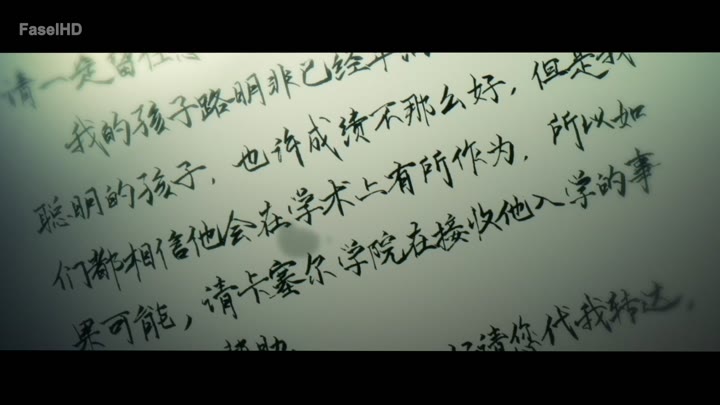 FaselHD
请一定留住
我的孩子路明非已经
聪明的孩子，也许成绩不那么好，但是我
们都相信他会在学术上有所作为，所以如
果可能，请卡塞尔学院在接收他入学的事
请您代我转达，